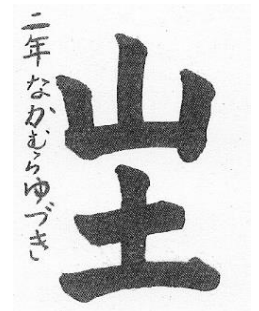 山土
二年なかむらゆづき